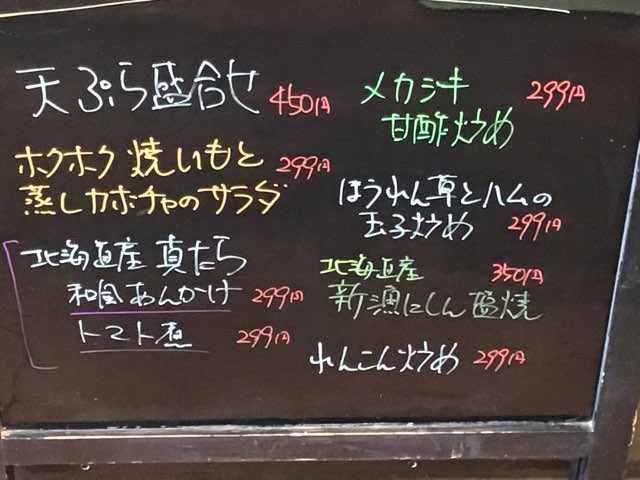 天ぷら盛合せ 450円
ホクホク 焼いもと 299円
蒸しカボチャのサラダ
北海道産 真たら
和風あんかけ 299円
トマト煮 299円
メカジキ 299円
甘酢炒め
ほうれん草とハムの
玉子炒め 299円
北海道産 350円
新漁にしん 塩焼
れんこん炒め 299円